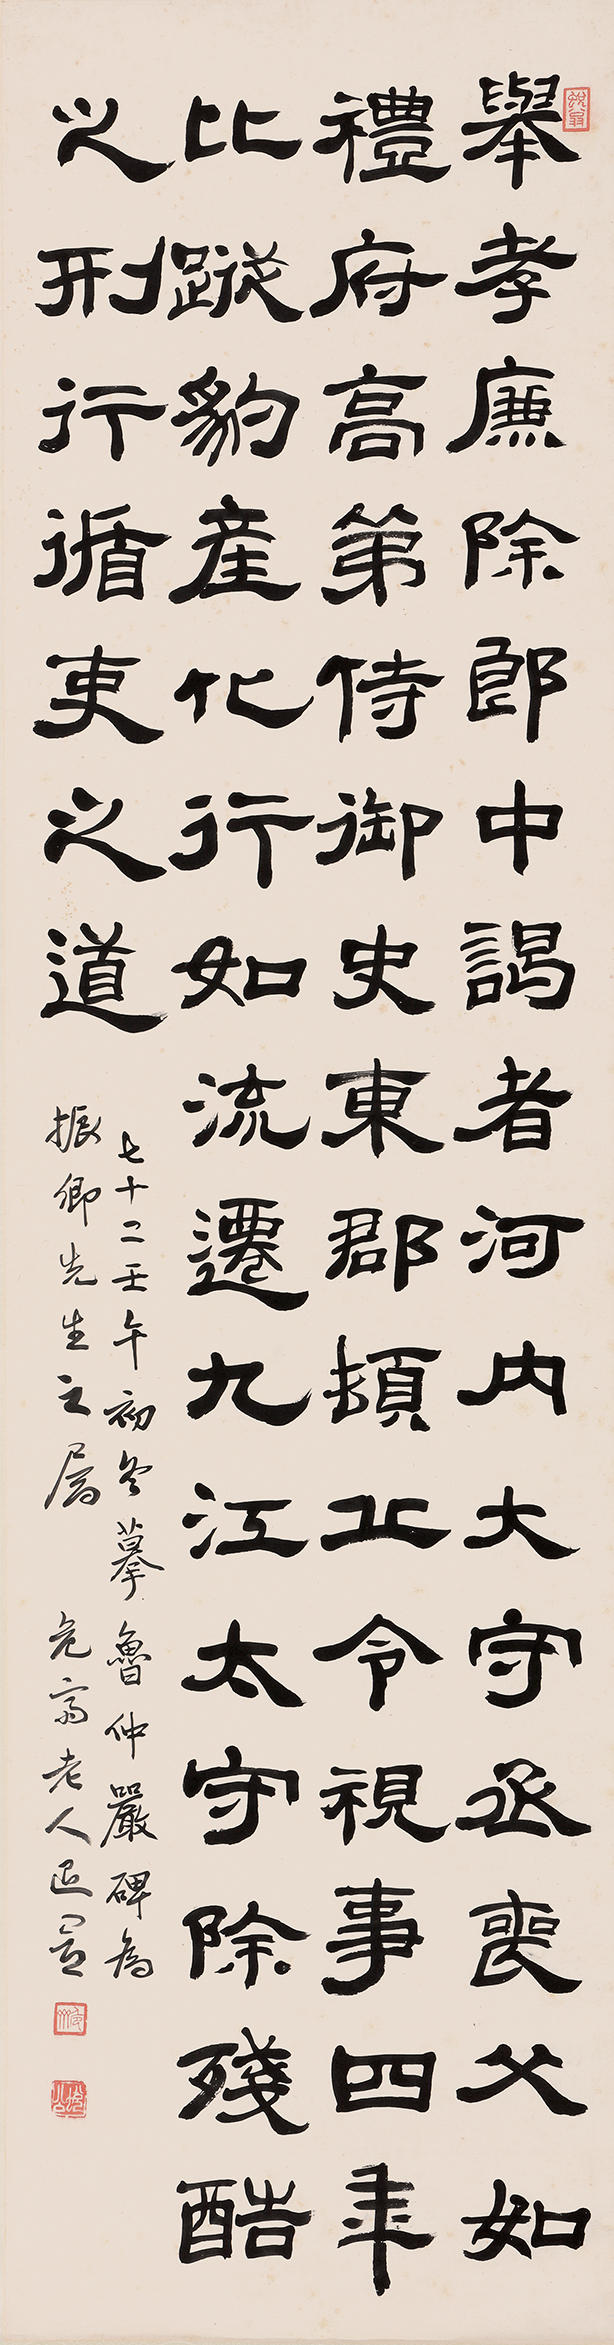 舉孝廉除郎中謁者河內大守丞喪父如
禮府高第侍御史東郡頓丘令視事四年
比蹤豹產化行如流遷九江太守除殘酷
之刑行循吏之道
七十二壬午初冬摹魯仲嚴碑為
振卿先生之屬 老人